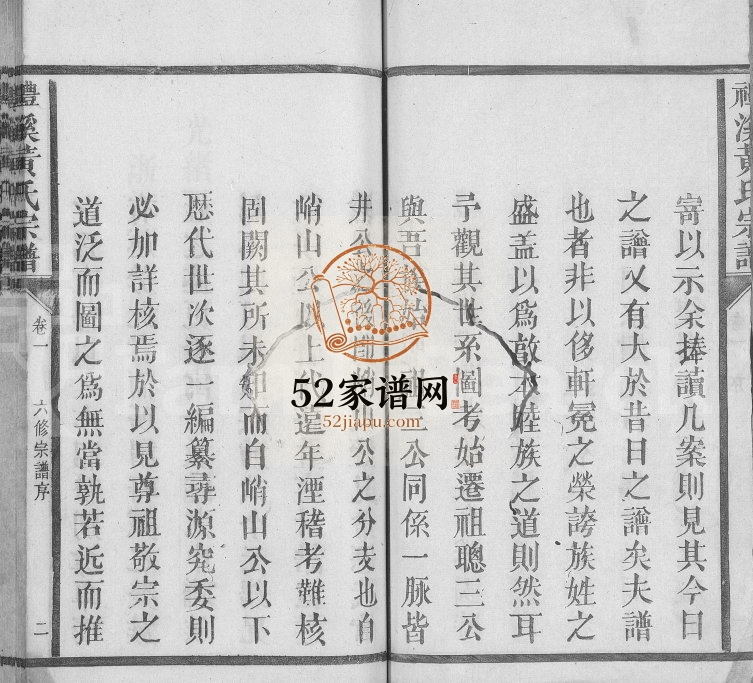 溪黃氏宗譜
寄以示余捧讀几案則見其今日
之譜又有大於昔日之譜矣夫譜
也者非以侈軒冕之榮誇族姓之
盛盖以爲敵本睦族之道則然耳
予觀其世系圖考始遷祖聰三公
與吾 公同係一脉皆
井公 公之分支也自
峭山公以上 遠年湮稽考難核
固闕其所未 而自峭山公以下
歷代世次逐一編纂尋源究委則
必加詳核焉於以見尊祖敬宗之
道泛而圖之爲無當孰若近而推
禮溪黃氏宗譜
卷一
六修宗譜序
二
52家谱网
52jiapu.com